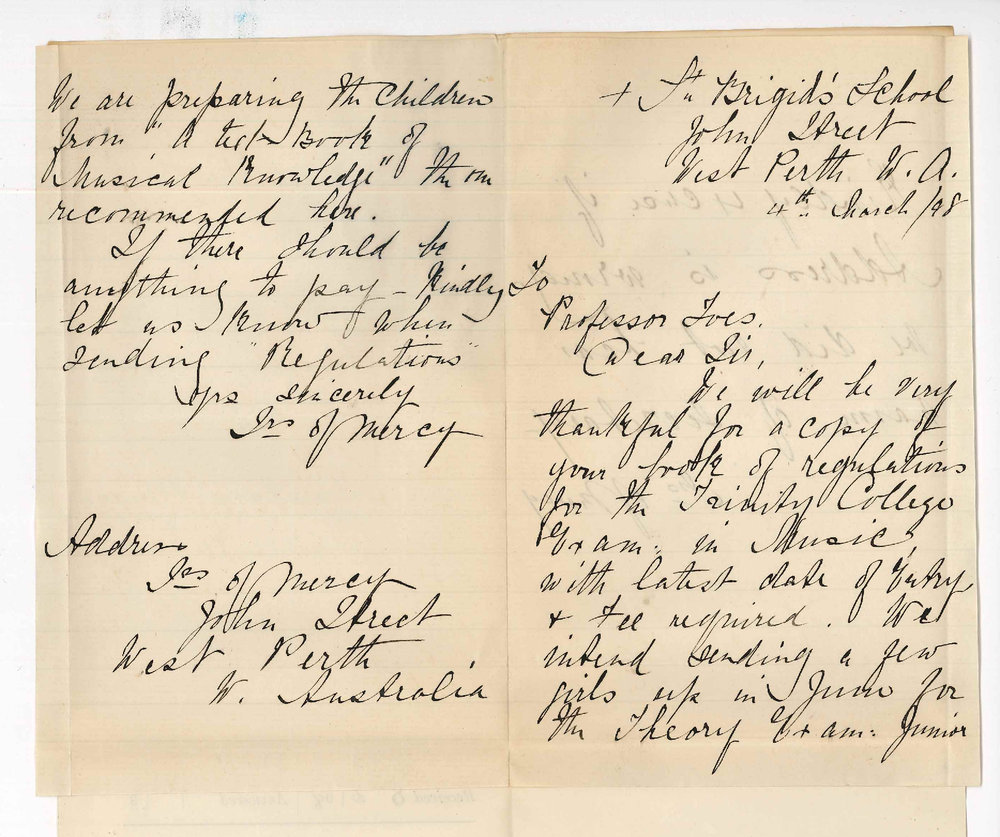 + St Brigid's School
John Street
West Perth W. A.
4th March/98
To
Professor Ives.
Dear Sir,
We will be very
thankful for a copy of
your book of regulations
for the Trinity College
Exam: in Music,
with latest date of Entry
+ Fee required. We
intend sending a few
girls up in June for
the Theory Exam: Junior
We are preparing the Children
from "A text Book of
Musical Knowledge" the one
recommended here.
If there should be
anything to pay - Kindly
let us Know when
sending "Regulations"
yrs sincerely
Srs of Mercy
Address
Srs of Mercy
John Street
West Perth
W. Australia